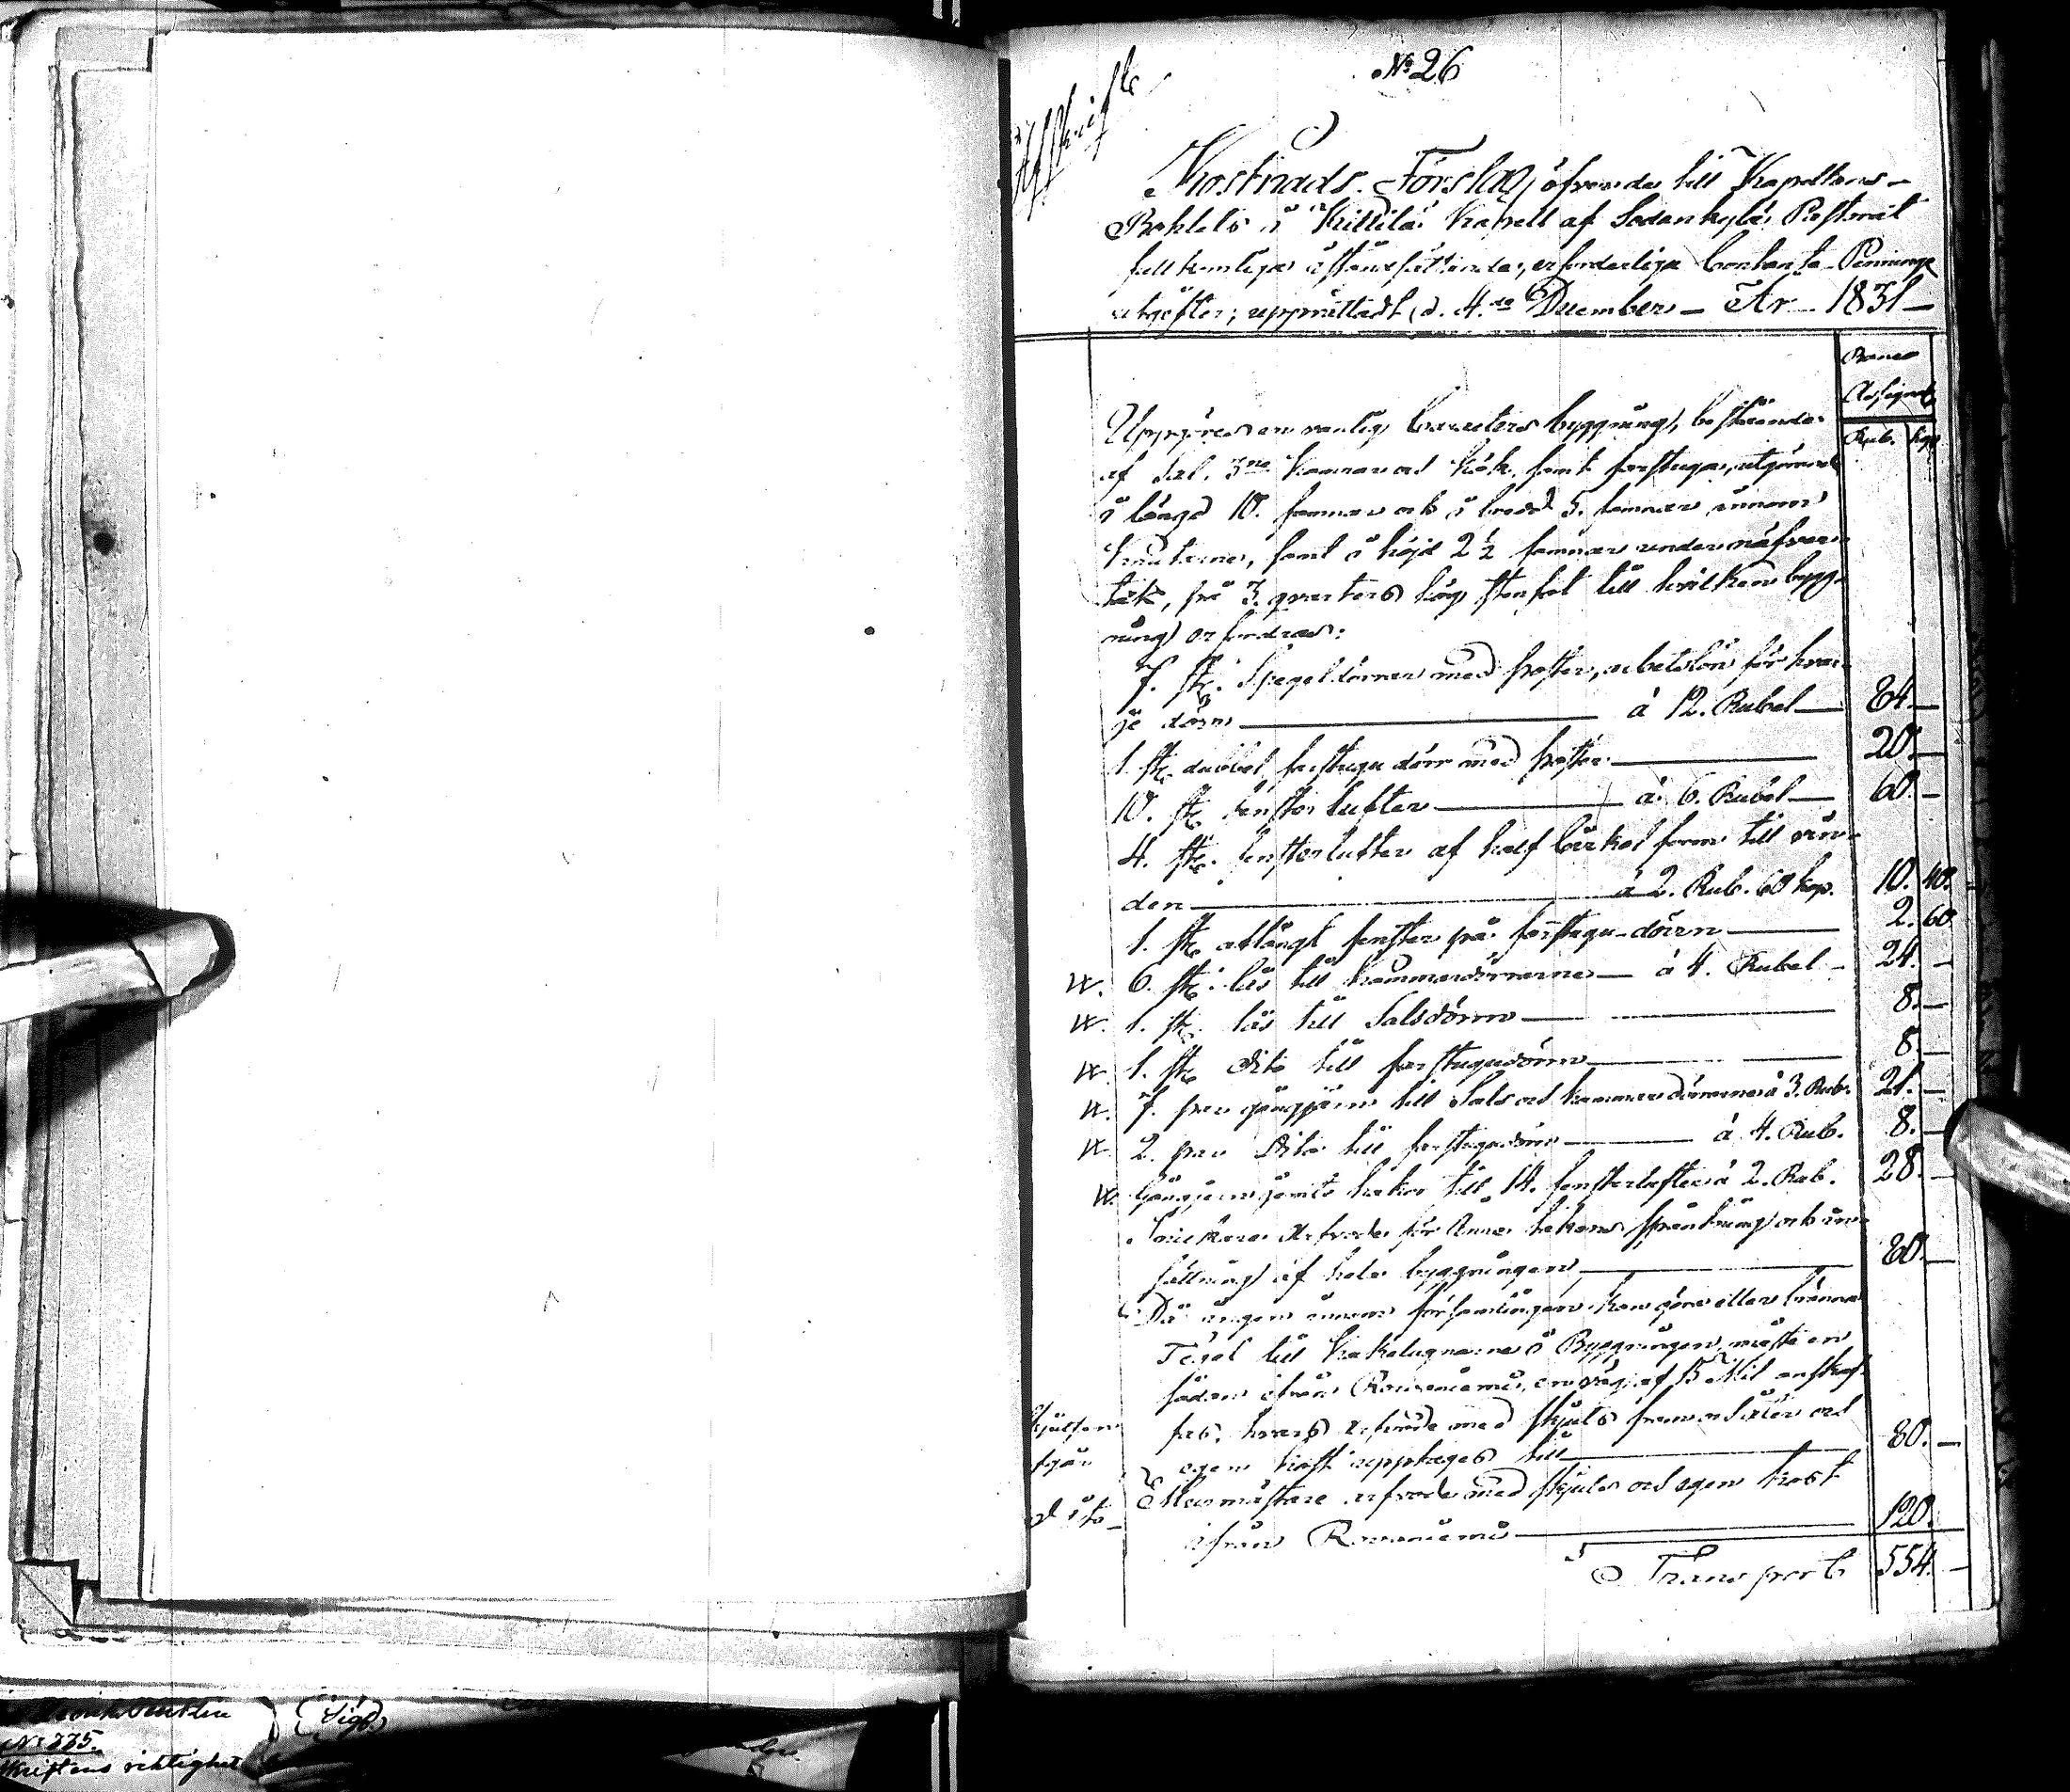 No 26
Afskrift
Kostnads Förslag öfver de till Kapellans-
Bohlets i Kittilä Kapell af Sodankylä Pastorat
fullkomliga iståndsättande, erforderliga Contanta Penninge
utgifter; upprättadt d. 4de December År 1831
Banco
Assignat
Rub. kop
Uppföres en vanlig Caracters byggning, bestående
af Sal, 3ne kamrar och kök samt farstuga, utgörande
i längd 10. famnar och i bredd 5. famnar innom
knutarne, samt i höjd 2½ famnar under näfver
tak, på 3. qvarters hög stenfot till hvilken bygg-
ning erfordras:
7. st. Spegeldörrar med foster, arbetslön för hvar-
je dörr à 12. Rubel 84 —
1. st. dubbel farstugu dörr med foster 20. —
10. st. fenster lufter à 6. Rubel 60. —
4. st. fensterlufter af half Cirkel form till vin-
den à 2. Rub. 60 kop. 10. 40.
1. st. aflångt fenster på farstugu-dörrn 2. 60
6. st. lås till kammardörrarne à 4. Rubel 24. —
1. st. lås till Salsdörrn 8. —
1. st. dito till farstugudörrn 8. —
7. par gångjärn till Sals och kammar dörrarne à 3. Rub. 21. —
2. par dito till farstugudörrn à 4. Rub. 8. —
Gångjern jemte hakar till 14. fensterlufter à 2. Rub. 28. —
Snickare Arfvode för Innan takens späntning och in-
fällning af hela byggningen 80. —
Då ingen innom församlingen kan göra eller bränna
Tegel till kakelugnarne i Byggningen, måste en
sådan ifrån Rovaniemi, en väg af 15 Mil anskaf-
fas, hvars arfvode med skjuts fram och åter och
egen kost upptages till 80. —
Murmästare arfvode med skjuts och egen kost
ifrån Rovaniemi 120.
Transport 554. —
No 225.
(Sigd)
skriftens riktighet